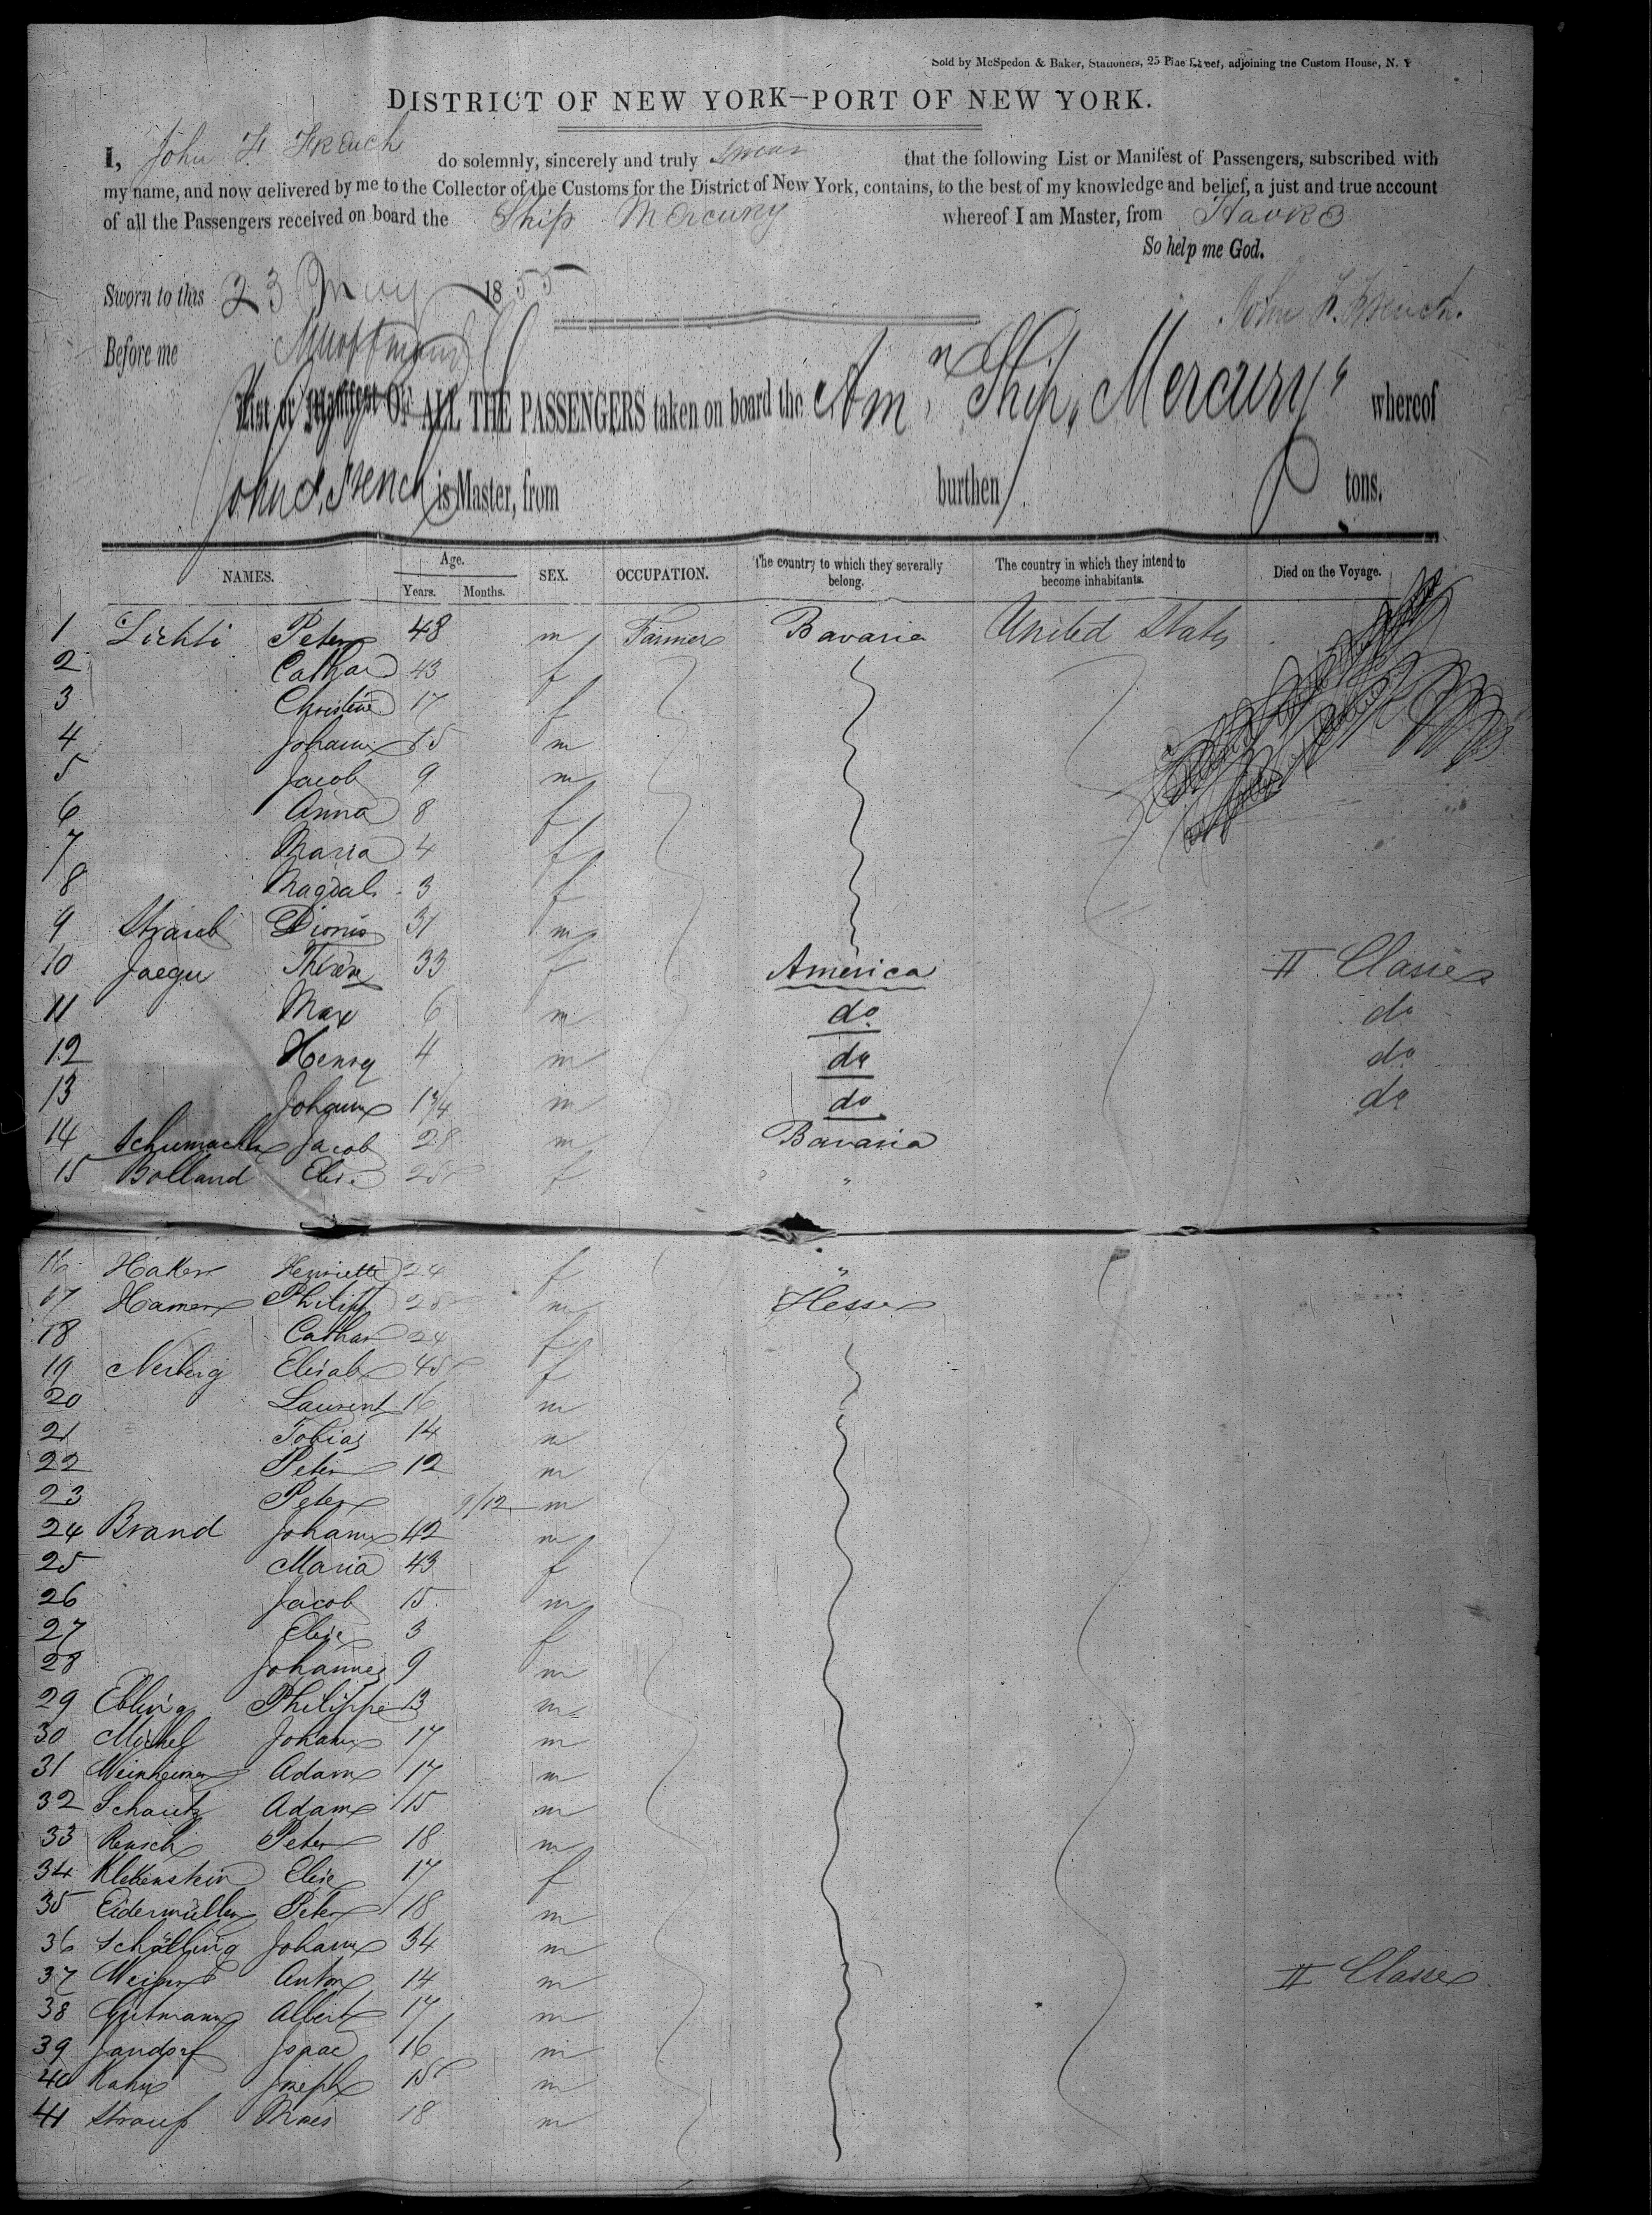 Sold by McSpedon & Baker, Stationers, 25 Pine Street, adjoining the Custom House, N. Y
DISTRICT OF NEW YORK—PORT OF NEW YORK.
I, John F. French do solemnly, sincerely and truly swear that the following List or Manifest of Passengers, subscribed with
my name, and now delivered by me to the Collector of the Customs for the District of New York, contains, to the best of my knowledge and belief, a just and true account
of all the Passengers received on board the Ship Mercury whereof I am Master, from Havre
So help me God.
Sworn to this 23 May 1855
John F. French.
Before me
List or Manifest OF ALL THE PASSENGERS taken on board the Amn Ship „Mercury“ whereof
John F. French is Master, from burthen tons.
NAMES. Age. Years. Months. SEX. OCCUPATION. The country to which they severally belong. The country in which they intend to become inhabitants. Died on the Voyage.
1 Lichti Peter 48 m Farmer Bavaria United States
2 Cathar 43 f
3 Christine 17 f
4 Johann 15 m
5 Jacob 9 m
6 Anna 8 f
7 Maria 4 f
8 Magdal. 3 f
9 Straub Dionis 31 m
10 Jaeger Thérèse 33 f America II Classe
11 Max 6 m do do
12 Henry 4 m do do
13 Johann 1 3/4 m do do
14 Schumacher Jacob 28 m Bavaria
15 Bolland Elise 25 f "
16 Haker Henriette 24 f "
17 Hamer Philipp 25 m Hesse
18 Cathar 24 f
19 Nerberg Elisab 45 f
20 Laurent 16 m
21 Tobias 14 m
22 Peter 12 m
23 Peter 9/12 m
24 Brand Johann 42 m
25 Maria 43 f
26 Jacob 15 m
27 Elise 3 f
28 Johannes 9 m
29 Ebling Philippe 13 m
30 Michel Johann 17 m
31 Weinheimer Adam 17 m
32 Schautz Adam 15 m
33 Rensch Peter 18 m
34 Klebenstein Elise 17 f
35 Eidermüller Peter 18 m
36 Schälling Johann 34 m
37 Anton 14 m II Classe
38 Gutmann Albert 17 m
39 Jandorf Isaac 16 m
40 Kahn Joseph 15 m
41 Strauß Moes 18 m